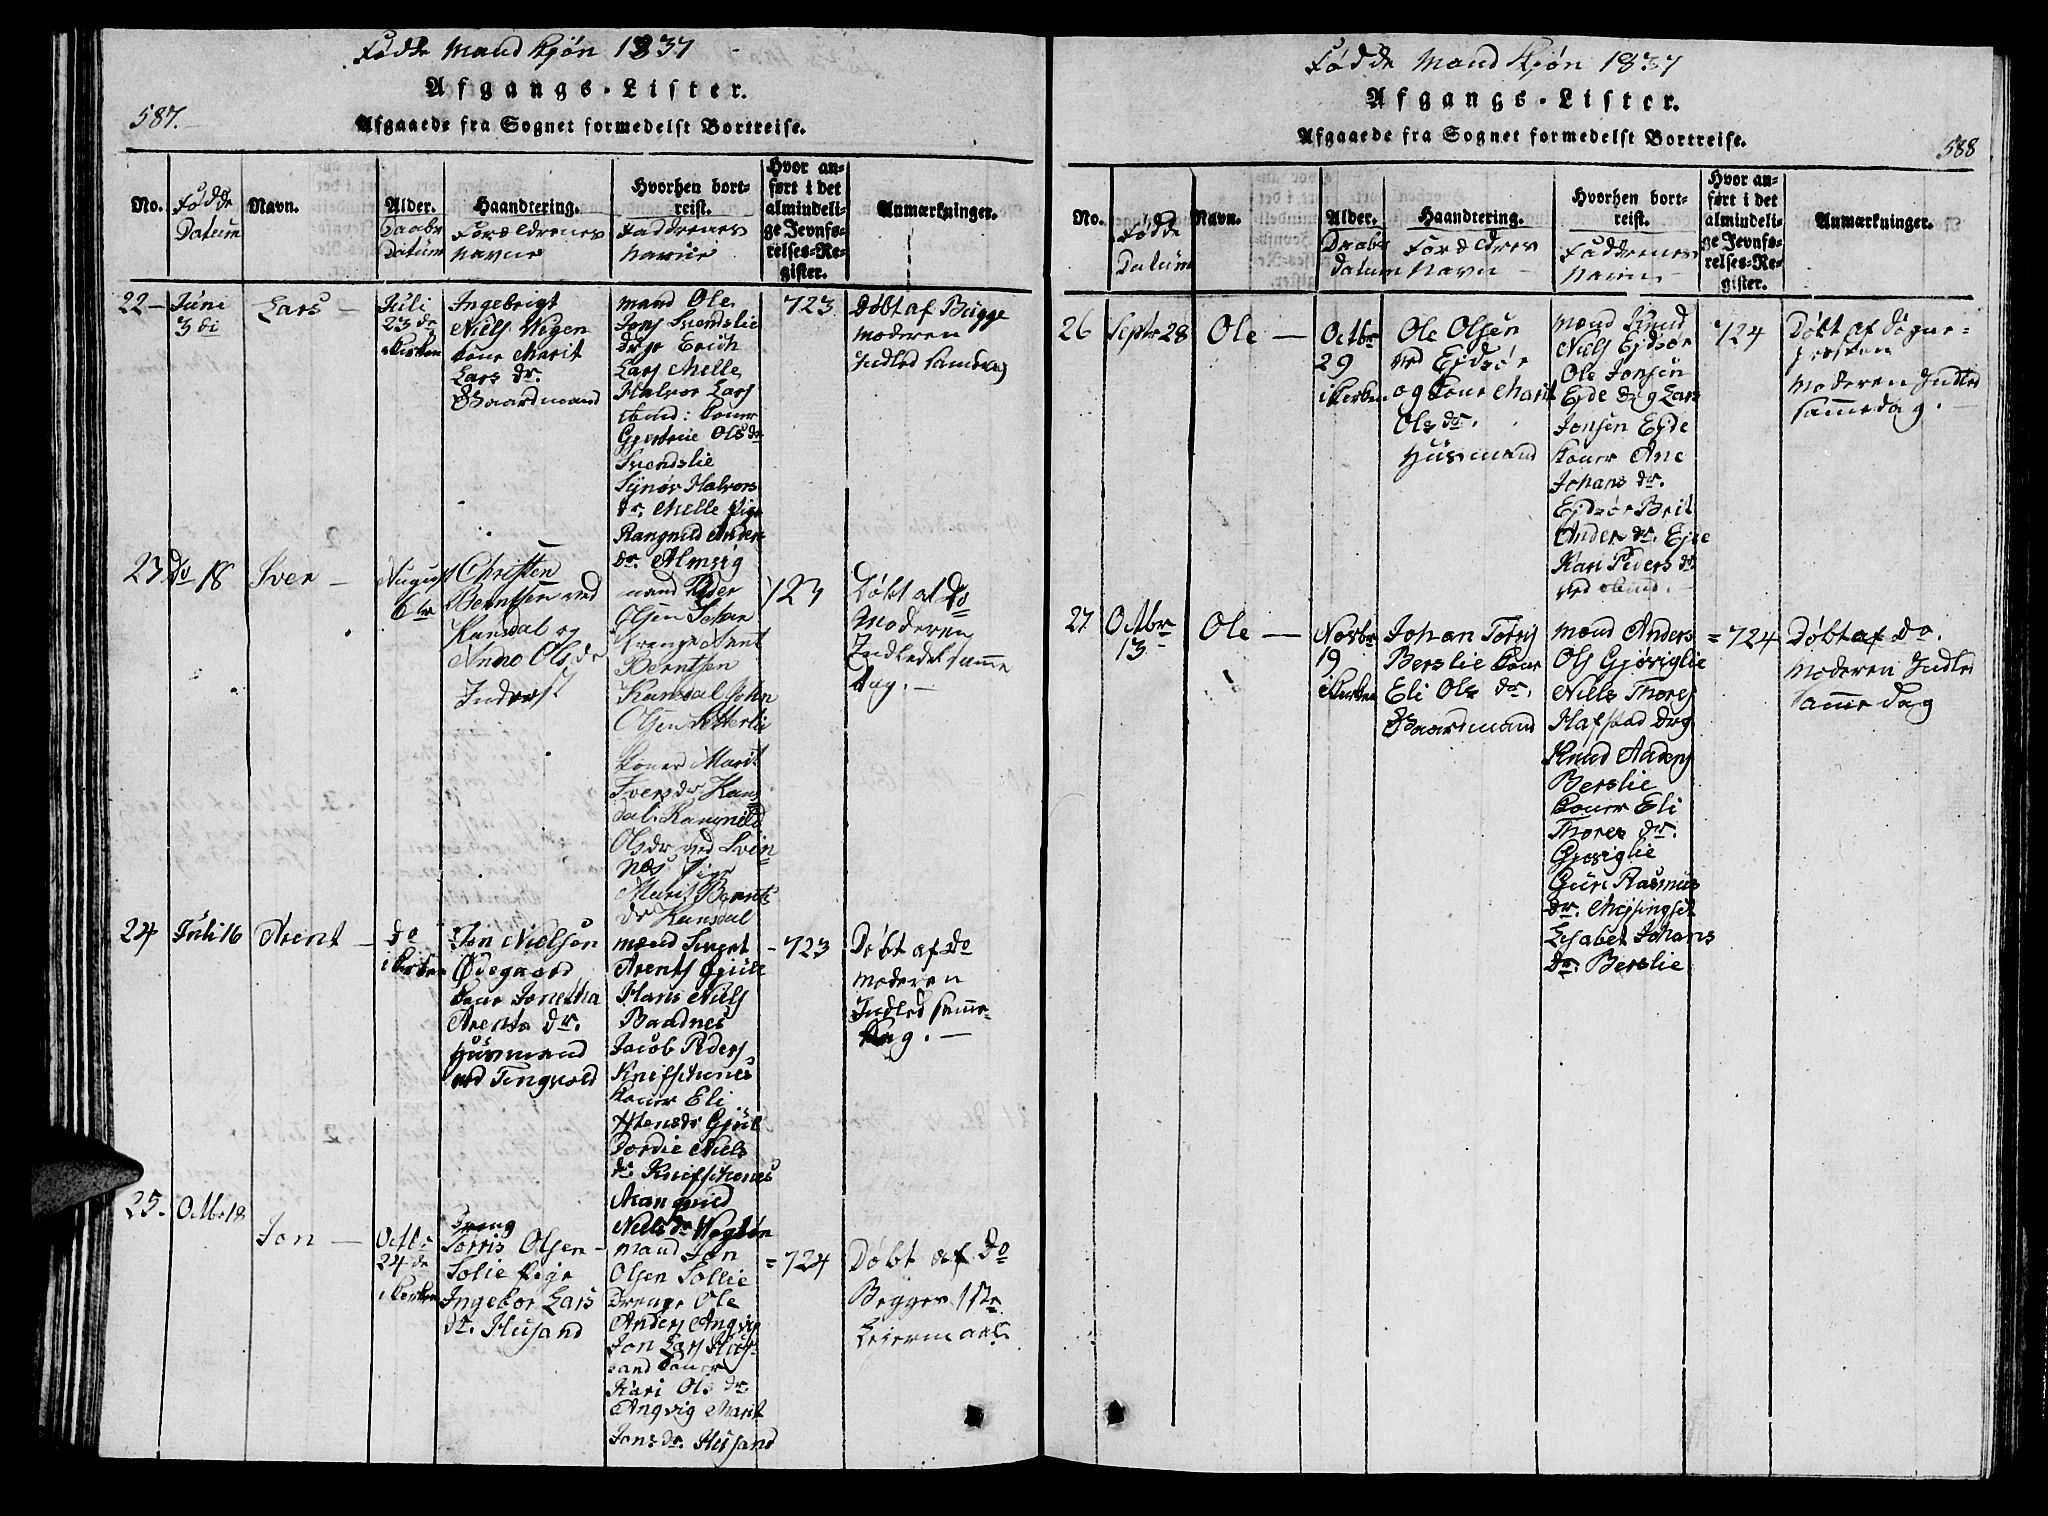 Fødde Mand Kjøn 1837
Afgangs-Lister.
587.
Afgaaede fra Sognet formedelst Bortreise.
No.
Fødde
Datum
Navn.
Alder.
Daabs
Datum
Haandtering.
Forældrenes
Navne
Hvorhen bort-
reist.
Faddrenes
Navne
Hvor an-
ført i det
almindeli-
ge Jevnfø-
relses-Re-
gister.
Anmærkninger.
22 —
Juni
3 di
Lars —
Juli
23 de
i Kerken
Ingebrigt
Niels Wegen
Kone Marit
Lars dr.
Gaardmand
mænd Ole
Jons Svendslie
Erich
Lars Melle
Halvor Lars
ibmd: Koner
Gjertrue Ols dr
Svendslie
Synøv Halvors
dr. Melle Pige
Rangnild Anders
dr. Almsig
723
Døbt af Bugge
Moderen
Indled samedag
23
Do 18
Iver —
August
6te
Christen
Berntsen ved
Kansdal og
Anne Ols dr
Inderst
mænd Peder
Olsen
Drenge Arent
Berntsen
Kansdal John
Olsen Sætterlie
Koner Marit
Ivers dr Kans
dal. Rangnild
Ols dr ved Svin-
næs Pige
Marit Bernts
dr Kansdal
723
Døbt af Do
Moderen
Indledet samme
dag. —
24
Juli 16
Arent —
Do
i Kerken
Jon Nielsen
Ødegaard
Kone Jonetha
Arents dr.
Husmand
ved Tingvold
mænd Sivert
Arents Gjüll
Hans Niels
Baadnes
Jacob Peders
Knifschones
Koner Eli
Hansdr Gjül
Dordie Niels
dr. Knifschones
Rangnild
Niels dr Wogbøn
- 723
Døbt af Do
Moderen
Indled samme-
Dag. —
25.
Octbr 18
Jon —
Octbr
24 de
i Kerken
Dreng
Torris Olsen
Solie Pige
Ingebor Lars
dr. Husand
mænd Jon
Olsen Sollie
Drenge Ole
Anders Angvig
Jon Lars Hus-
sand Koner
Kari Ols dr.
Angvig Marit
Jons dr. Husand
= 724
Døbt af Do
Begges 1ste
Leiermaal.
Fødde Mand Kjøn 1837
Afgangs-Lister.
Afgaaede fra Sognet formedelst Bortreise.
588
No.
Fødde
Datum
Navn.
Alder.
Daabs
Datum
Haandtering.
Forældres
Navn —
Hvorhen bort-
reist.
Faddrenes
Navn. —
Hvor an-
ført i det
almindeli-
ge Jevnfø-
relses-Re-
gister.
Anmærkninger.
26
Septbr 28
Ole —
Octbr
29
i Kerken
Ole Olsen
ved Ejdsør
og Kone Marit
Ols dr.
Husmand
mænd Knud
Niels Ejdsør
Ole Jonsen
Ejde og Lars
Jonsen Ejde
Koner Ane
Johans dr.
Ejdsør Brit
Anders dr. Ejde
Kari Peders dr
ved ibmd. —
724
Døbt af Sogne-
presten
Moderen Indled
samme dag. —
27
Octbr
13
Ole —
Novbr
19
i Kerken
Johan Torrys
Berslie Kone
Eli Ols dr.
Gaardmand
mænd Anders
Ols Gjøviglie
Niels Thores
Hafstad Dreg
Knud Anders
Berslie
Koner Eli
Thores dr.
Gjøviglie
Guri Rasmus
dr. Mejsingset
Lisabet Johans
Dr. Berslie
= 724
Døbt af Do.
Moderen Indled
samme Dag